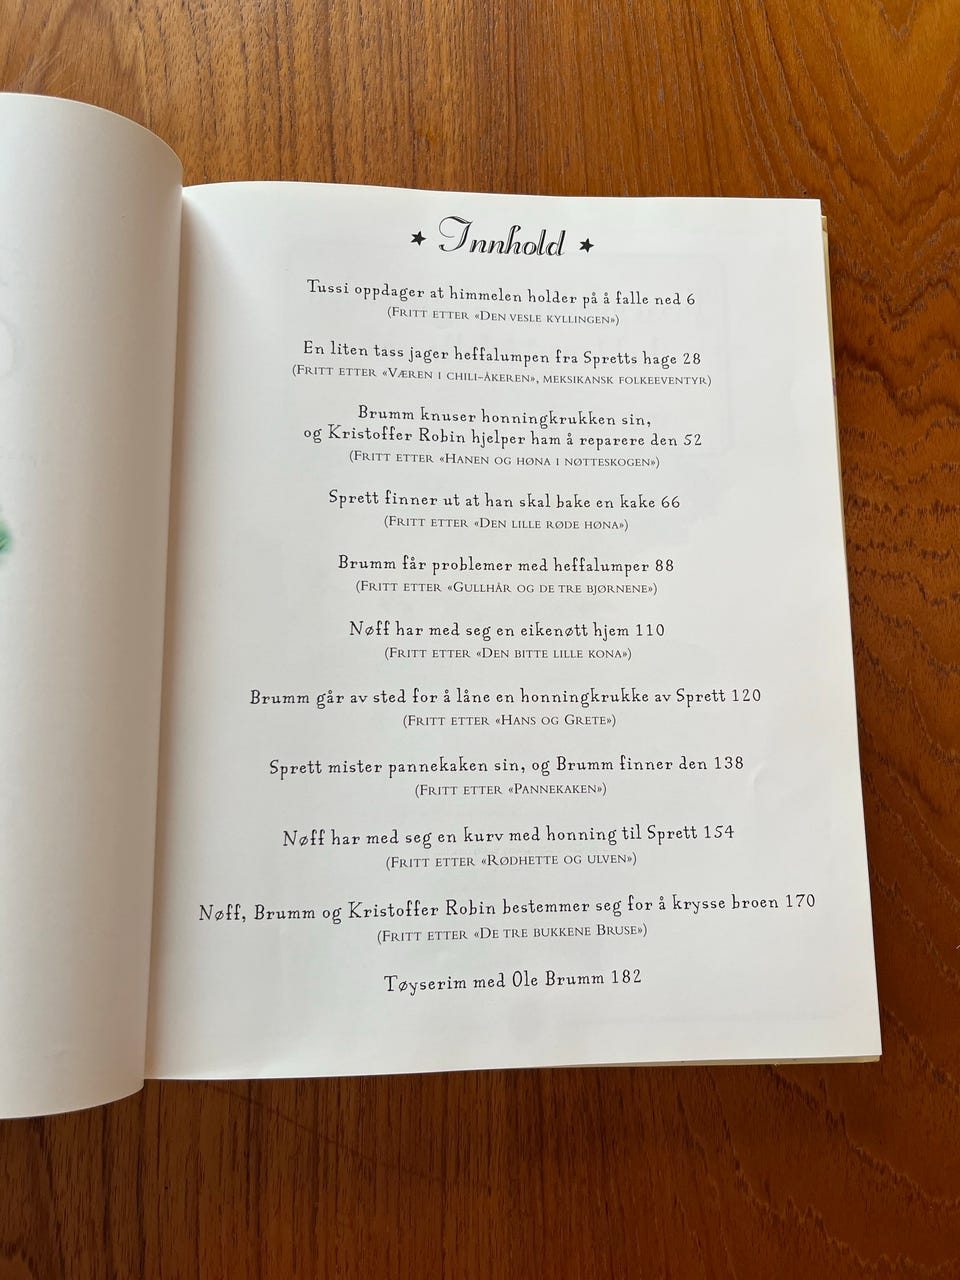 Innhold
Tussi oppdager at himmelen holder på å falle ned 6
(Fritt etter «Den vesle kyllingen»)
En liten tass jager heffalumpen fra Spretts hage 28
(Fritt etter «Væren i chili-åkeren», meksikansk folkeeventyr)
Brumm knuser honningkrukken sin,
og Kristoffer Robin hjelper ham å reparere den 52
(Fritt etter «Hanen og høna i nøtteskogen»)
Sprett finner ut at han skal bake en kake 66
(Fritt etter «Den lille røde høna»)
Brumm får problemer med heffalumper 88
(Fritt etter «Gullhår og de tre bjørnene»)
Nøff har med seg en eikenøtt hjem 110
(Fritt etter «Den bitte lille kona»)
Brumm går av sted for å låne en honningkrukke av Sprett 120
(Fritt etter «Hans og Grete»)
Sprett mister pannekaken sin, og Brumm finner den 138
(Fritt etter «Pannekaken»)
Nøff har med seg en kurv med honning til Sprett 154
(Fritt etter «Rødhette og ulven»)
Nøff, Brumm og Kristoffer Robin bestemmer seg for å krysse broen 170
(Fritt etter «De tre bukkene Bruse»)
Tøyserim med Ole Brumm 182